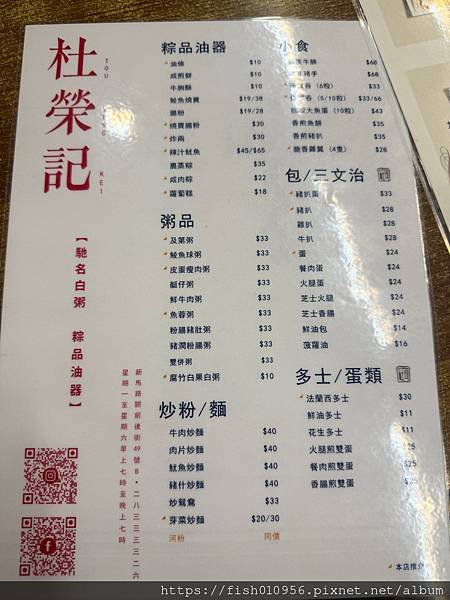 杜榮記
TOU
KEI
【馳名白粥 粽品油器】
新馬路關前後街49號B・二八三三三三二六
星期一至星期六早上七時至晚上七時
粽品油器
油條 $10
咸煎餅 $10
牛脷酥 $10
鯪魚燒賣 $19/38
腸粉 $19/28
燒賣腸粉 $30
炸兩 $30
辣汁魷魚 $45/$65
裹蒸粽 $35
咸肉粽 $22
蘿蔔糕 $18
粥品
及第粥 $33
鯪魚球粥 $33
皮蛋瘦肉粥 $33
艇仔粥 $33
鮮牛肉粥 $33
魚蓉粥 $33
粉腸豬肚粥 $33
豬潤粉腸粥 $33
雙併粥 $33
腐竹白果白粥 $10
炒粉/麵
牛肉炒麵 $40
肉片炒麵 $40
魷魚炒麵 $40
豬什炒麵 $40
炒鴛鴦 $33
芽菜炒麵 $20/30
河粉 同價
小食
牛腩 $68
豬手 $68
(6粒) $33
(5/10粒) $33/66
大魚蛋 (10粒) $43
香煎魚餅 $35
香煎豬扒 $35
脆香雞翼 (4隻) $28
包/三文治
豬扒蛋 $33
豬扒 $28
雞扒 $28
牛扒 $28
蛋 $24
餐肉蛋 $24
火腿蛋 $24
芝士火腿 $24
芝士香腸 $24
鮮油包 $14
菠蘿油 $16
多士/蛋類
法蘭西多士 $30
鮮油多士 $11
花生多士 $11
火腿煎雙蛋 $25
餐肉煎雙蛋 $25
香腸煎雙蛋 $25
本店推介
https://fish010956.pixnet.net/album